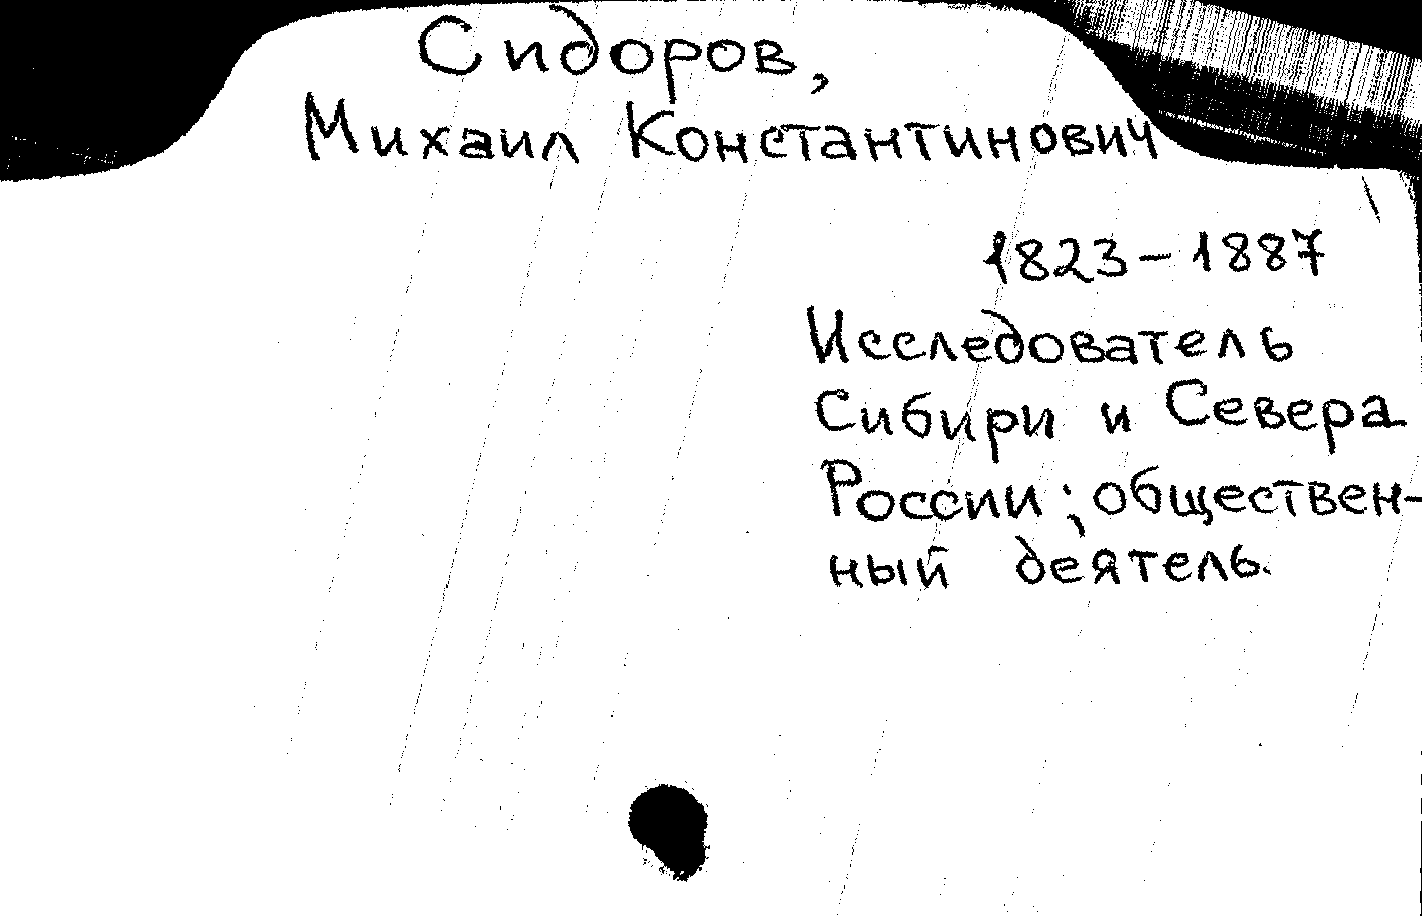 Сидоров,
Михаил Константинович
1823-1887
Исследователь
Сибири и Севера
России; обществен-
ный деятель.